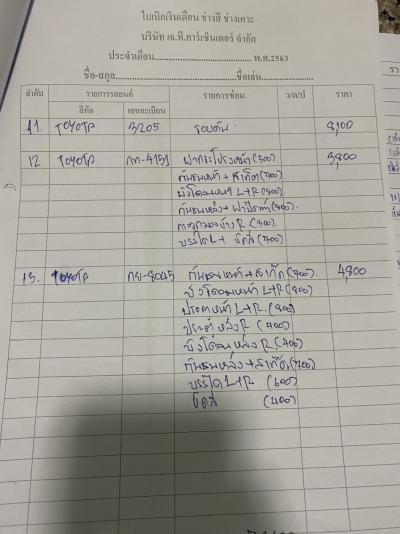 ใบเบิกเงินเดือน ช่างสี ช่างเคาะ
บริษัท เจ.ที.คาร์เซ็นเตอร์ จำกัด
ประจำเดือน พ.ศ.2563
ชื่อ-สกุล ชื่อเล่น
ลำดับ รายการรถยนต์ รายการซ่อม ว/ด/ป ราคา
ยี่ห้อ เลขทะเบียน
11. TOYOTA 3205 รอบคัน 8,100
12 TOYOTA กท-4151 ฝากระโปรงหน้า (500) 3,800
กันชนหน้า + สเกิ๊ต (700)
บังโคลนหน้า L+R (800)
กันชนหลัง +
R
บรรได L +
13. TOYOTA กย-8045 กันชนหน้า + สเกิ๊ต (700) 4,800
บังโคลนหน้า L+R (800)
ประตูหน้า L+R (800)
ประตูหลัง R (400)
บังโคลนหลัง R (400)
กันชนหลัง + สเกิ๊ต (700)
บรรได L+R (600)
ขัดสี (400)